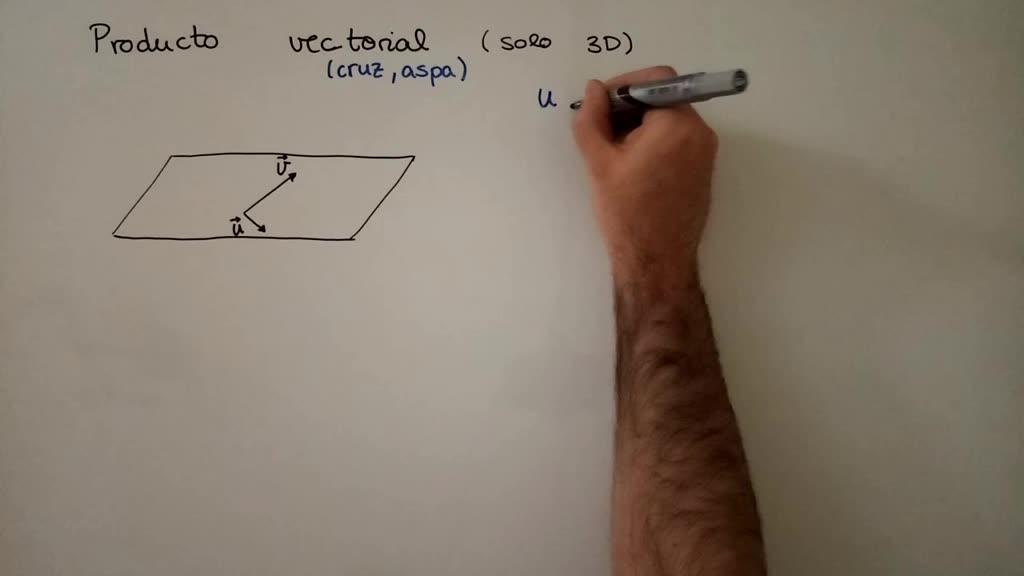 Producto vectorial (solo 3D)
(cruz, aspa)
u
v⃗
u⃗